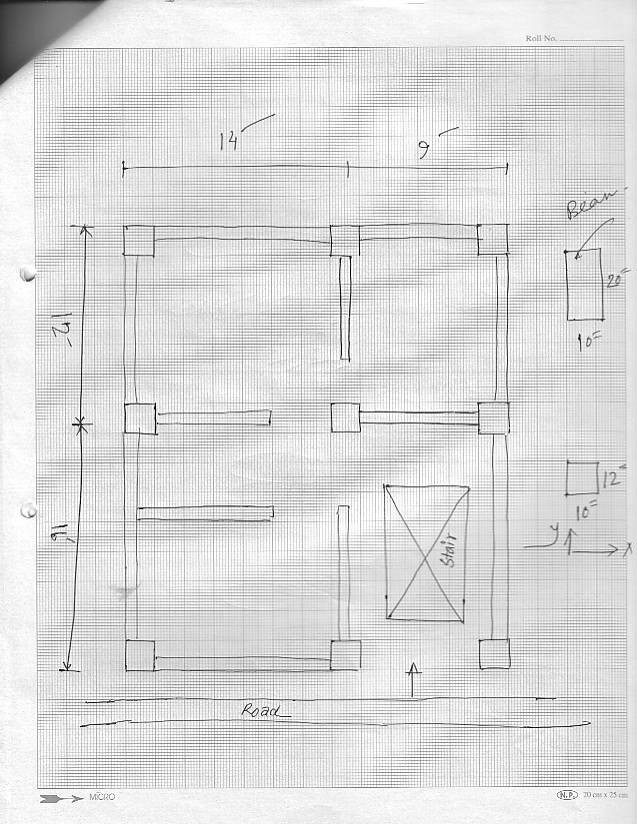 Roll No.
14'
9'
Beam
20"
10"
12'
12"
10"
16'
y
x
Stair
Road
MICRO
N.P. 20 cm x 25 cm